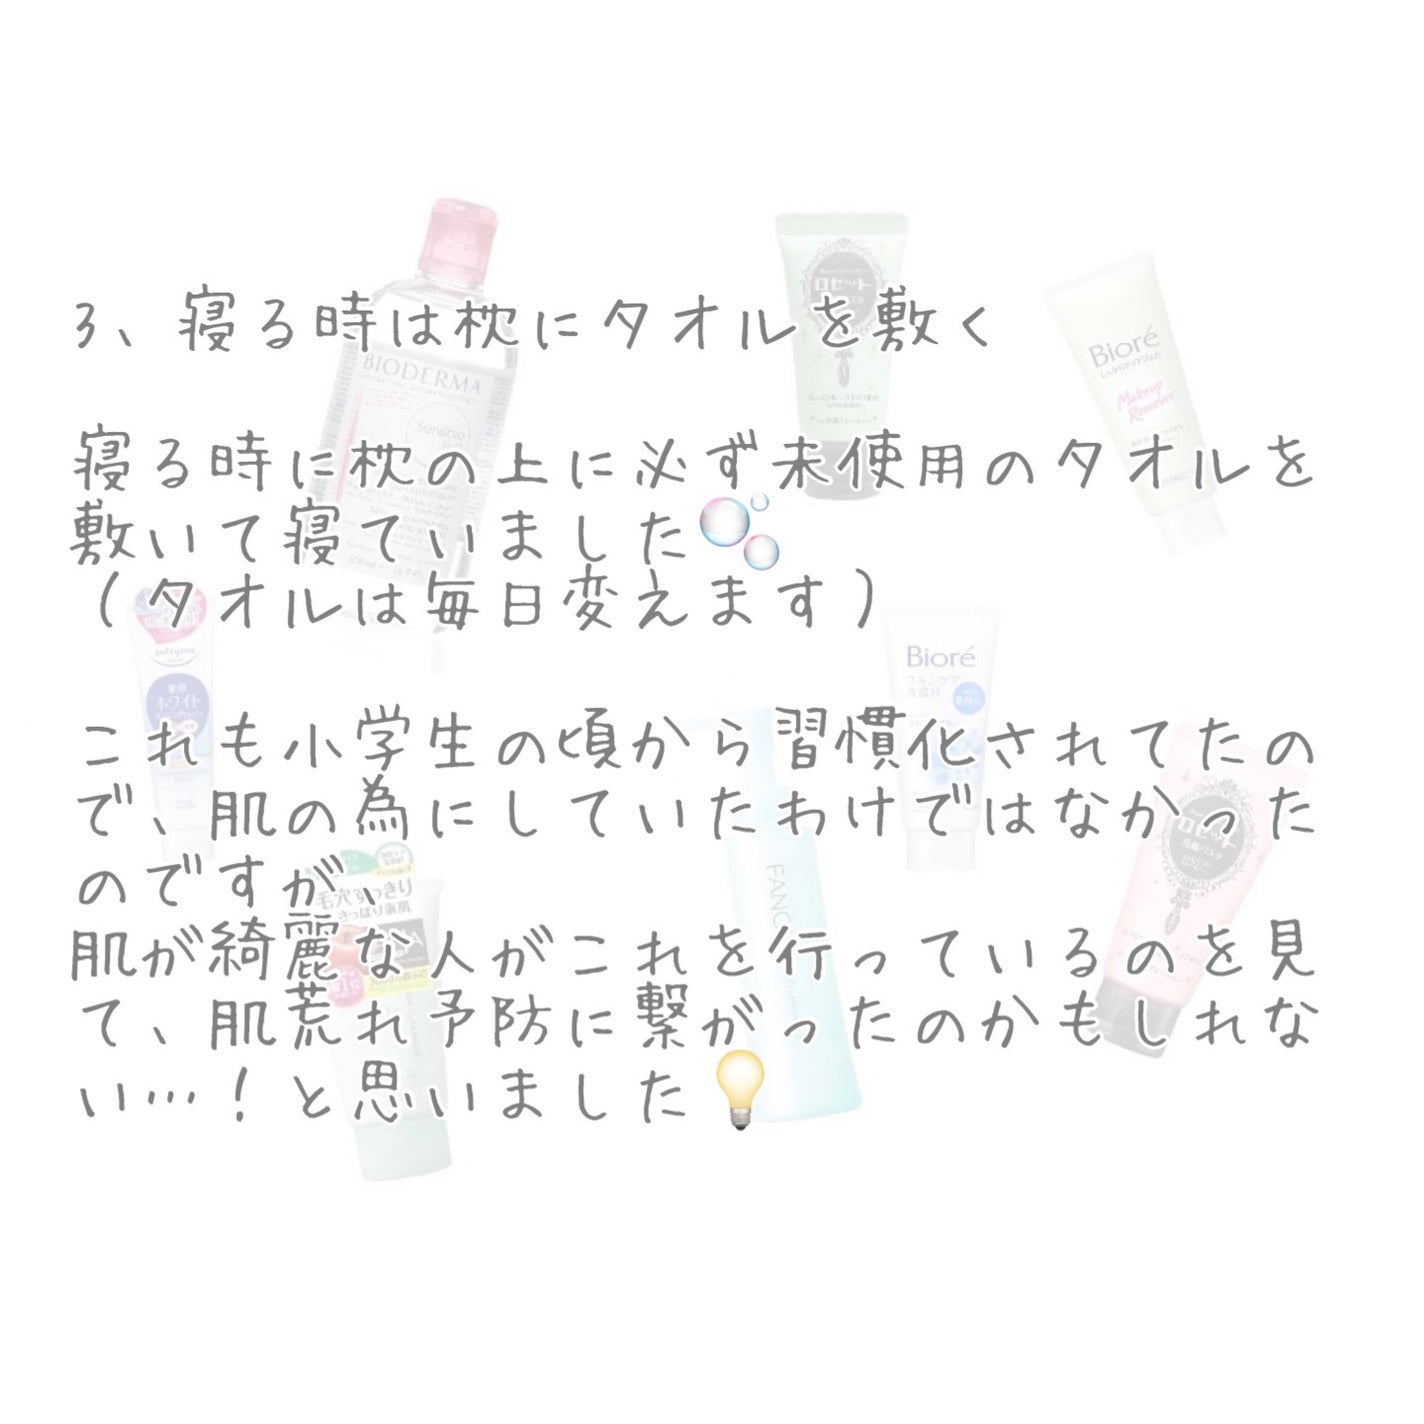 3、寝る時は枕にタオルを敷く
寝る時に枕の上に必ず未使用のタオルを
敷いて寝ていました🫧
（タオルは毎日変えます）
これも小学生の頃から習慣化されてたの
で、肌の為にしていたわけではなかった
のですが、
肌が綺麗な人がこれを行っているのを見
て、肌荒れ予防に繋がったのかもしれな
い…！と思いました💡
BIODERMA
Sensibio
ロゼット
Bioré
Makeup
Remover
softymo
薬用
ホワイト
Bioré
スキンケア
洗顔料
毛穴すっきり
さっぱり素肌
FANC
ロゼット
洗顔パスタ